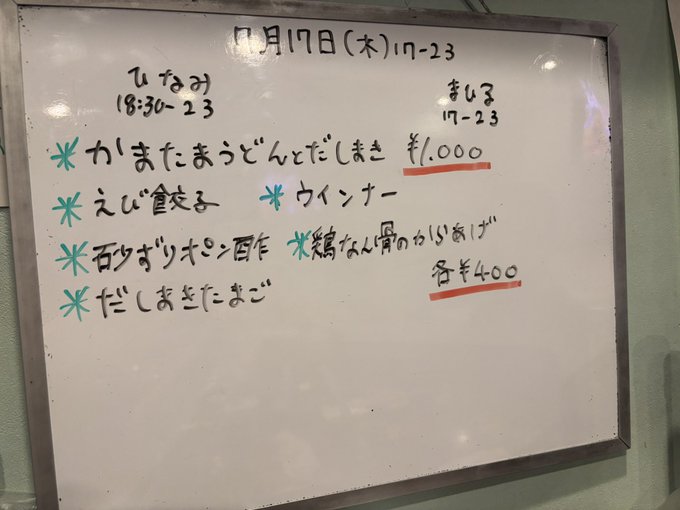 7月17日(木)17-23
ひなみ
18:30-23
まひる
17-23
＊かまたまうどんとだしまき ¥1.000
＊えび餃子 ＊ウインナー
＊砂ずりポン酢 ＊鶏なん骨のからあげ
＊だしまきたまご
各¥400